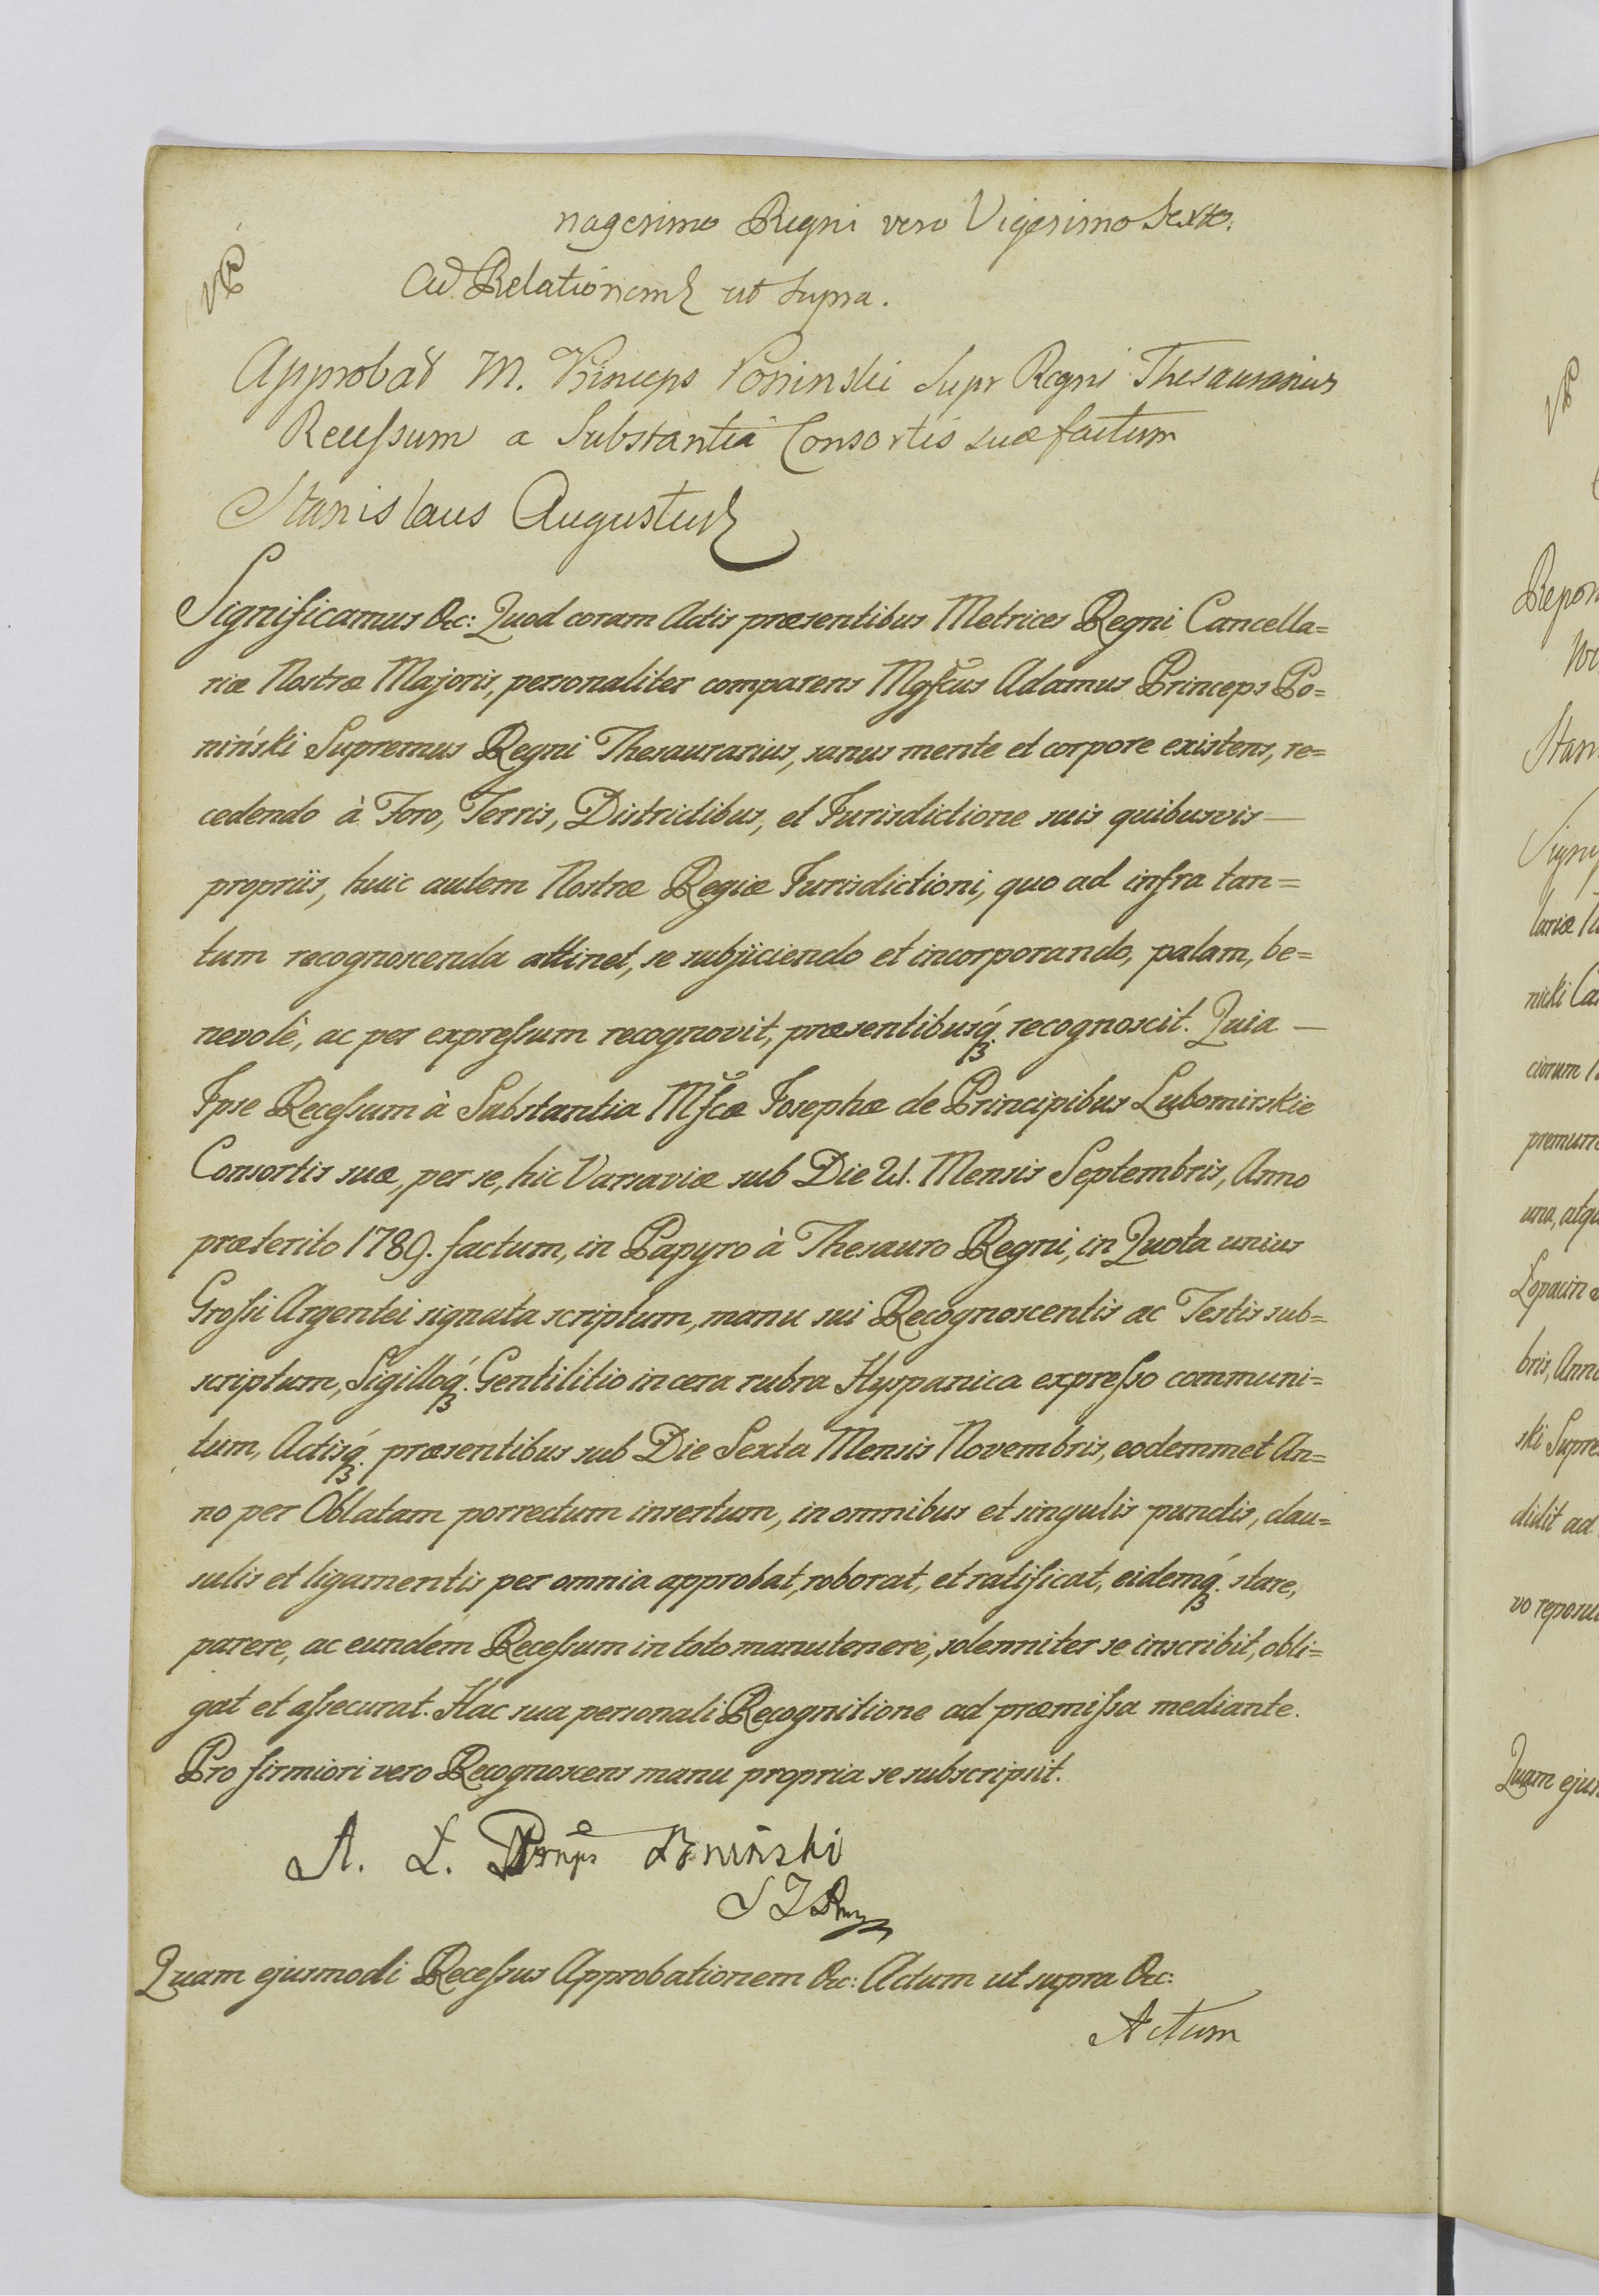 nagesimo Regni vero Vigesimo Sexto.
Ad Relationem ut supra.
Approbat M. Princeps Poninski Supr Regni Thesaurarius
Recessum a Substantia Consortis suæ factum
Stanislaus Augustus
Significamus &c: Quod coram Actis præsentibus Metrices Regni Cancella=
riæ Nostræ Majoris, personaliter comparens Mgfcus Adamus Princeps Po=
niński Supremus Regni Thesaurarius, sanus mente et corpore existens, re=
cedendo à Foro, Terris, Districtibus, et Jurisdictione suis quibusvis —
propriis, huic autem Nostræ Regiæ Jurisdictioni, quo ad infra tan=
tum recognoscenda attinet, se subjiciendo et incorporando, palam, be=
nevolè, ac per expressum recognovit, præsentibusq́ꝫ recognoscit. Quia —
Ipse Recessum à Substantia Mfcæ Josephæ de Principibus Lubomirskie
Consortis suæ, per se, hic Varsaviæ sub Die Mensis Septembris, Anno
præterito 1789. factum, in Papyro à Thesauro Regni, in Quota unius
Grossi Argentei signata scriptum, manu sui Recognoscentis ac Testis sub=
scriptum, Sigilloq́ꝫ. Gentilitio in cera rubra Hyspanica expresso communi=
tum, Actisq́ꝫ. præsentibus sub Die Sexta Mensis Novembris, eodemmet An=
no per Oblatam porrectum insertum, in omnibus et singulis punctis, clau=
sulis et ligamentis per omnia approbat, roborat, et ratificat, eidemq́ꝫ. stare,
parere, ac eundem Recessum in toto manutenere, solenniter se inscribit, obli=
gat et assecurat. Hac sua personali Recognitione ad præmissa mediante.
Pro firmiori vero Recognoscens manu propria se subscripsit.
A. Ł. Poniński
Quam ejusmodi Recessus Approbationem &c: Actum ut supra &c:
Actum
Repon
Stan
lariæ
nicki Ca
ciorum
premum
una, atq
Łopacin
bris, Ann
ski Supre
didit ad
vo reposu
Quam ejus